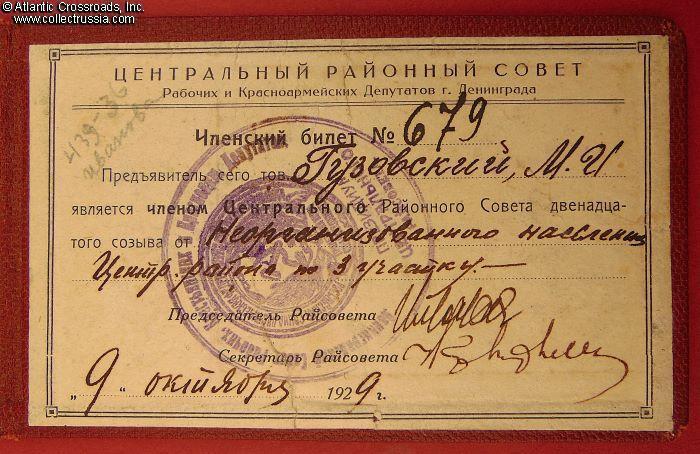 © Atlantic Crossroads, Inc.
www.collectrussia.com
ЦЕНТРАЛЬНЫЙ РАЙОННЫЙ СОВЕТ
Рабочих и Красноармейских Депутатов г. Ленинграда
439-36
Иванова
Членский билет № 679
Предъявитель сего тов. Гузовский, М. И
является членом Центрального Районного Совета двенадца-
того созыва от Неорганизованного населения
Центр. района по 3 участку.—
Председатель Райсовета
Секретарь Райсовета
„ 9 “ октября 1929 г.